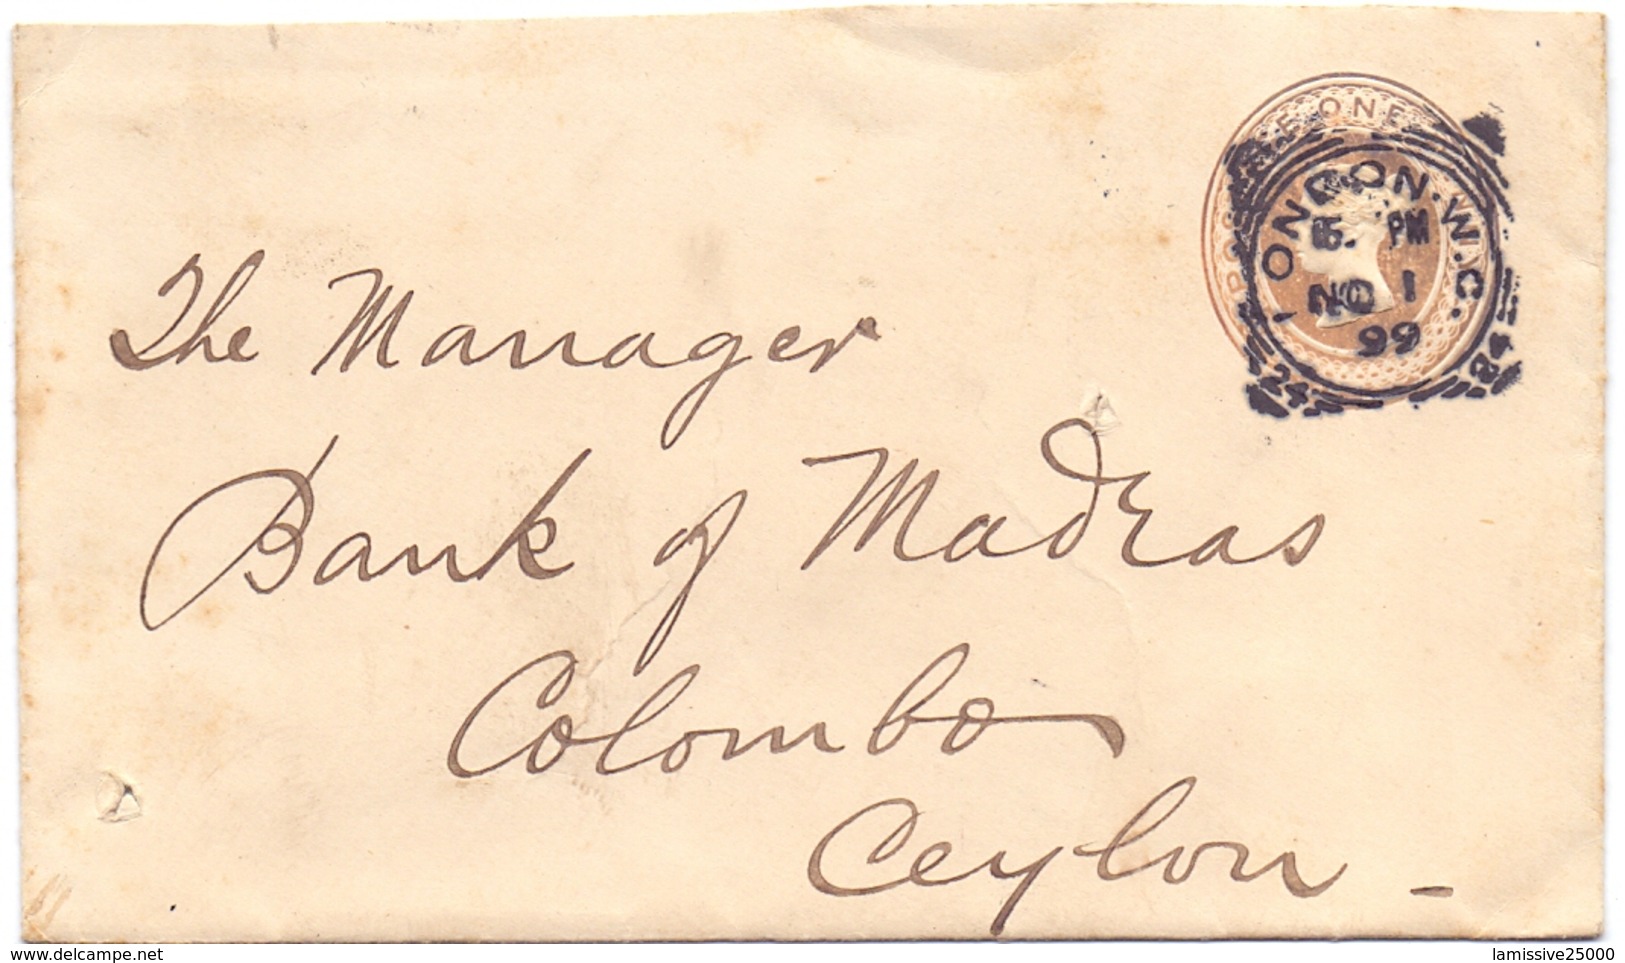 E ONE
LONDON.W.C.
PM
NO 1
99
24
The Manager
Bank of Madras
Colombo
Ceylon -
delcampe.net
lamissive25000